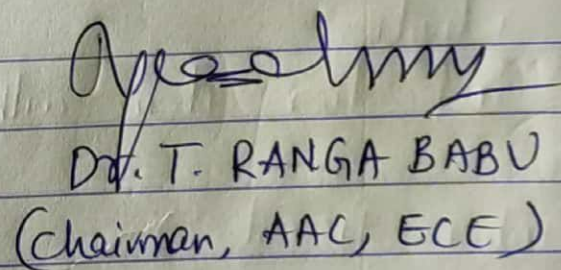 Dr. T. RANGA BABU
(Chairman, AAC, ECE)